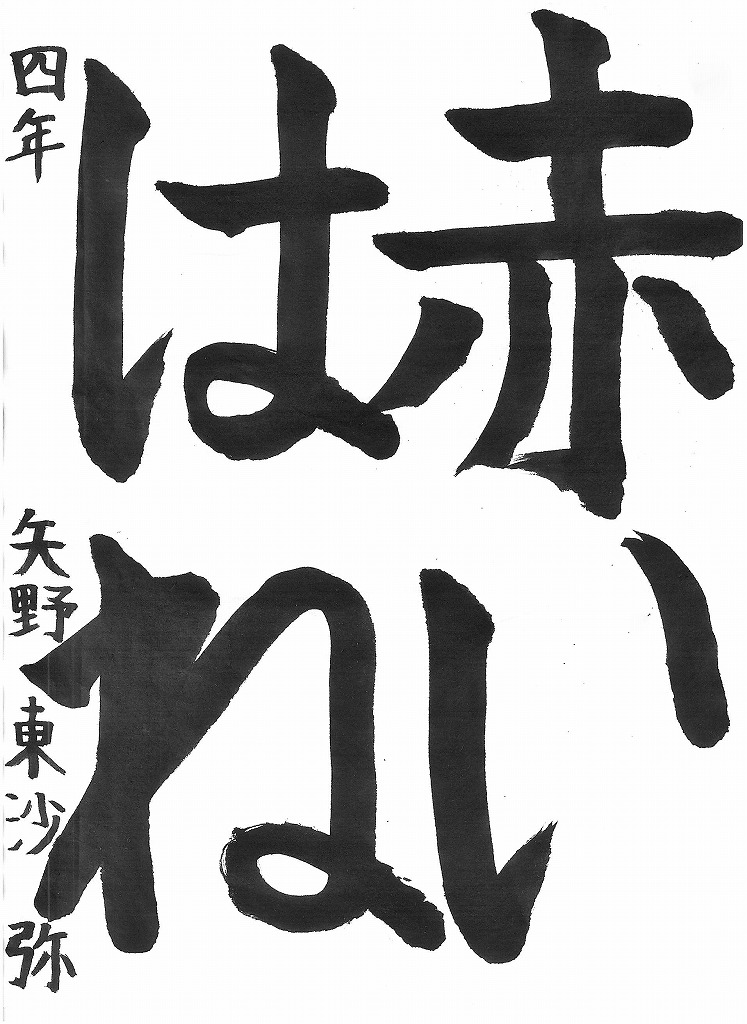 赤い
はね
四年 矢野 東沙弥